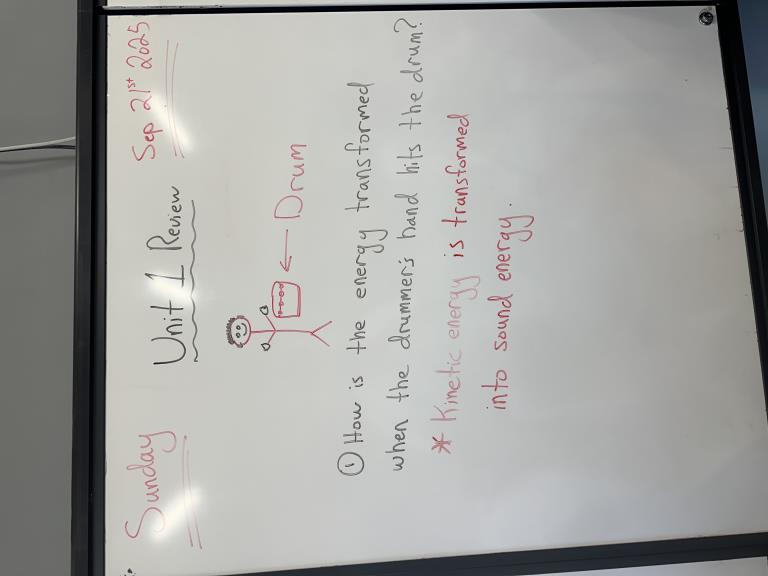 Sunday
Sep 21st 2025
Unit 1 Review
← Drum
① How is the energy transformed
when the drummer's hand hits the drum?
* Kinetic energy is transformed
into sound energy.